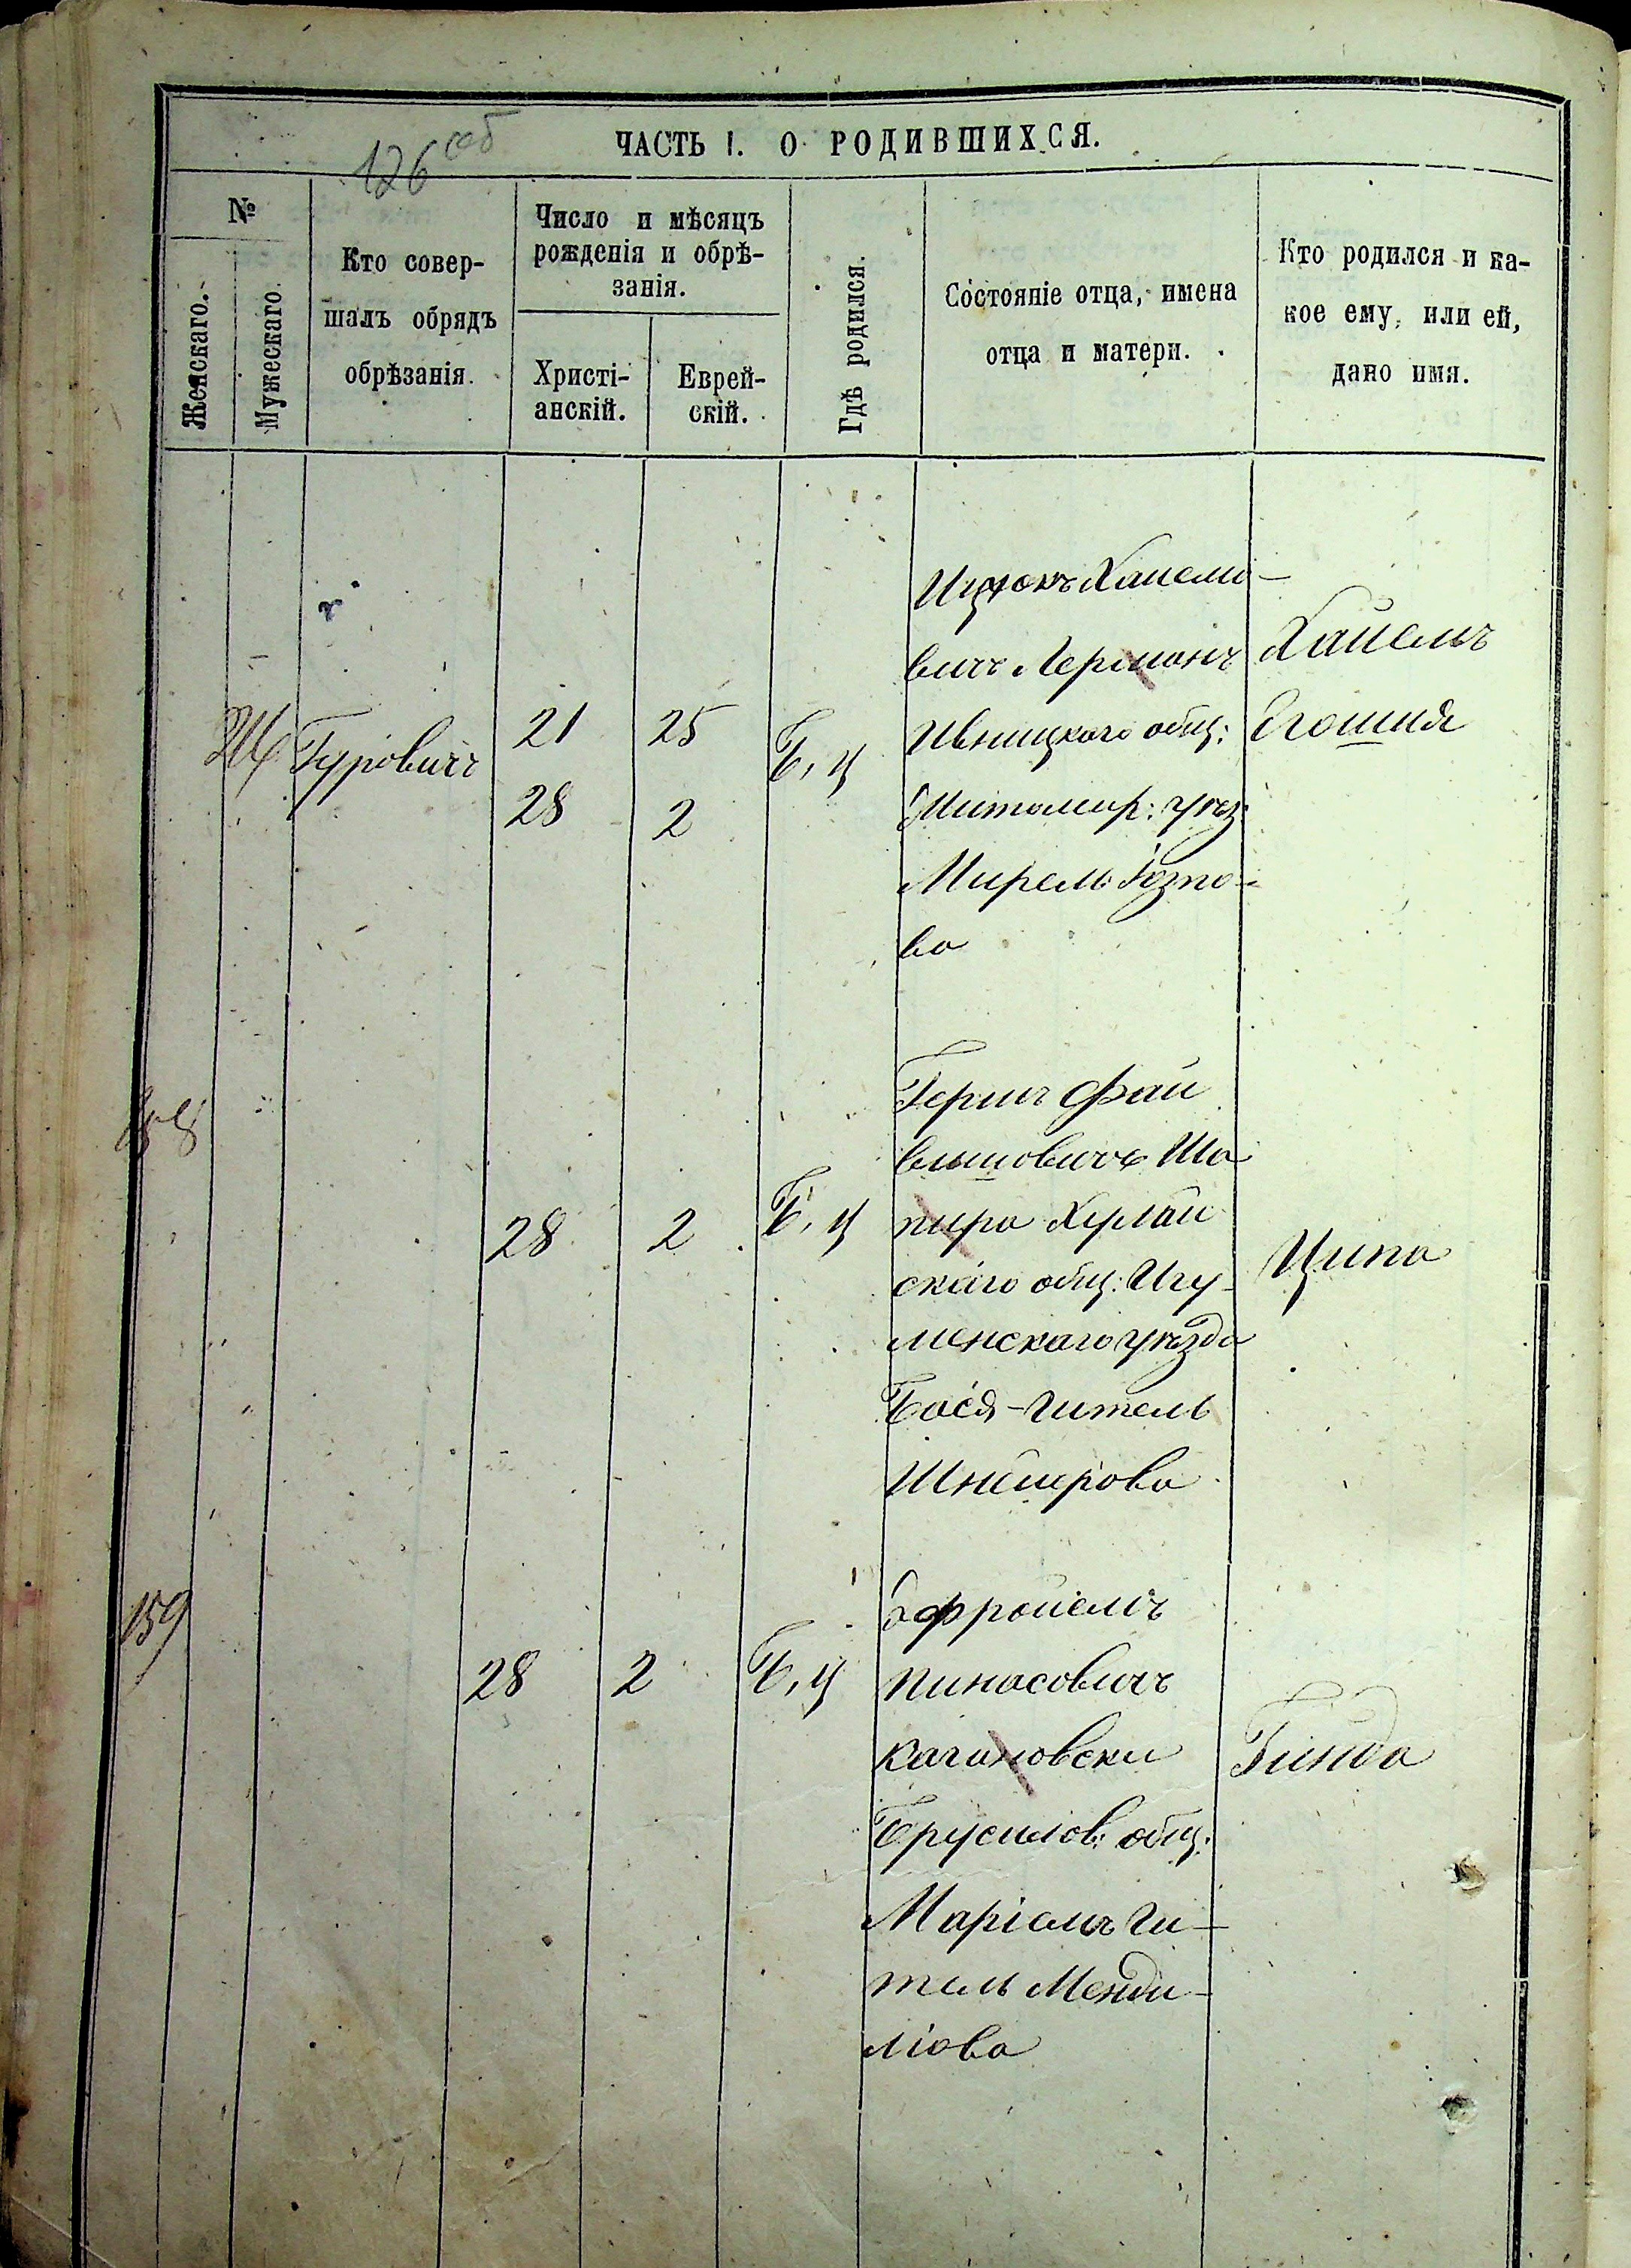 126 об
ЧАСТЬ I. О РОДИВШИХСЯ.
№
Женскаго.
Мужескаго.
Кто совер-
шалъ обрядъ
обрѣзанія.
Число и мѣсяцъ
рожденія и обрѣ-
занія.
Христі-
анскій.
Еврей-
скій.
Гдѣ родился.
Состояніе отца, имена
отца и матери.
Кто родился и ка-
кое ему, или ей,
дано имя.
Гуровичъ
21
28
25
2
Б, ц
Ицхокъ Хаимо-
вичъ Лерманъ
Ивницкаго общ:
Житомир: уѣз:
Мирель
ва
Хаимъ
Егошия
28
2
Б, ц
Гершъ Фай
вышовичъ Ша
пира
скаго общ: Игу-
менскаго уѣзда
Бася-Гитель
Шнеерова
Ципа
159
28
2
Б, ц
Эфроимъ
Пинасовичъ
Кагановски
Брусилов: общ:
Маріемъ Ги-
тель Менди-
ліова
Гинда